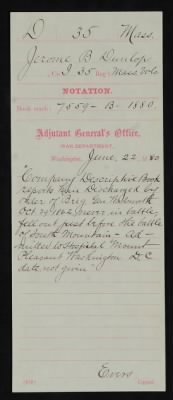 D 35 Mass.
Jerome B Dunlop
, Co. I, 35 Reg't Mass. Vols
NOTATION.
Book mark: 7559-B-1880.
Adjutant General's Office,
WAR DEPARTMENT,
Washington, June, 22, 1880
Company Descriptive Book
reports him Discharged by
order of Brig. Gen Wadsworth
Oct 29, 1862, never in battle,
fell out just before the battle
of South Mountain - Ad-
mitted to Hospital Mount
Pleasant Washington D.C
date not given"
Evers
Copyist.